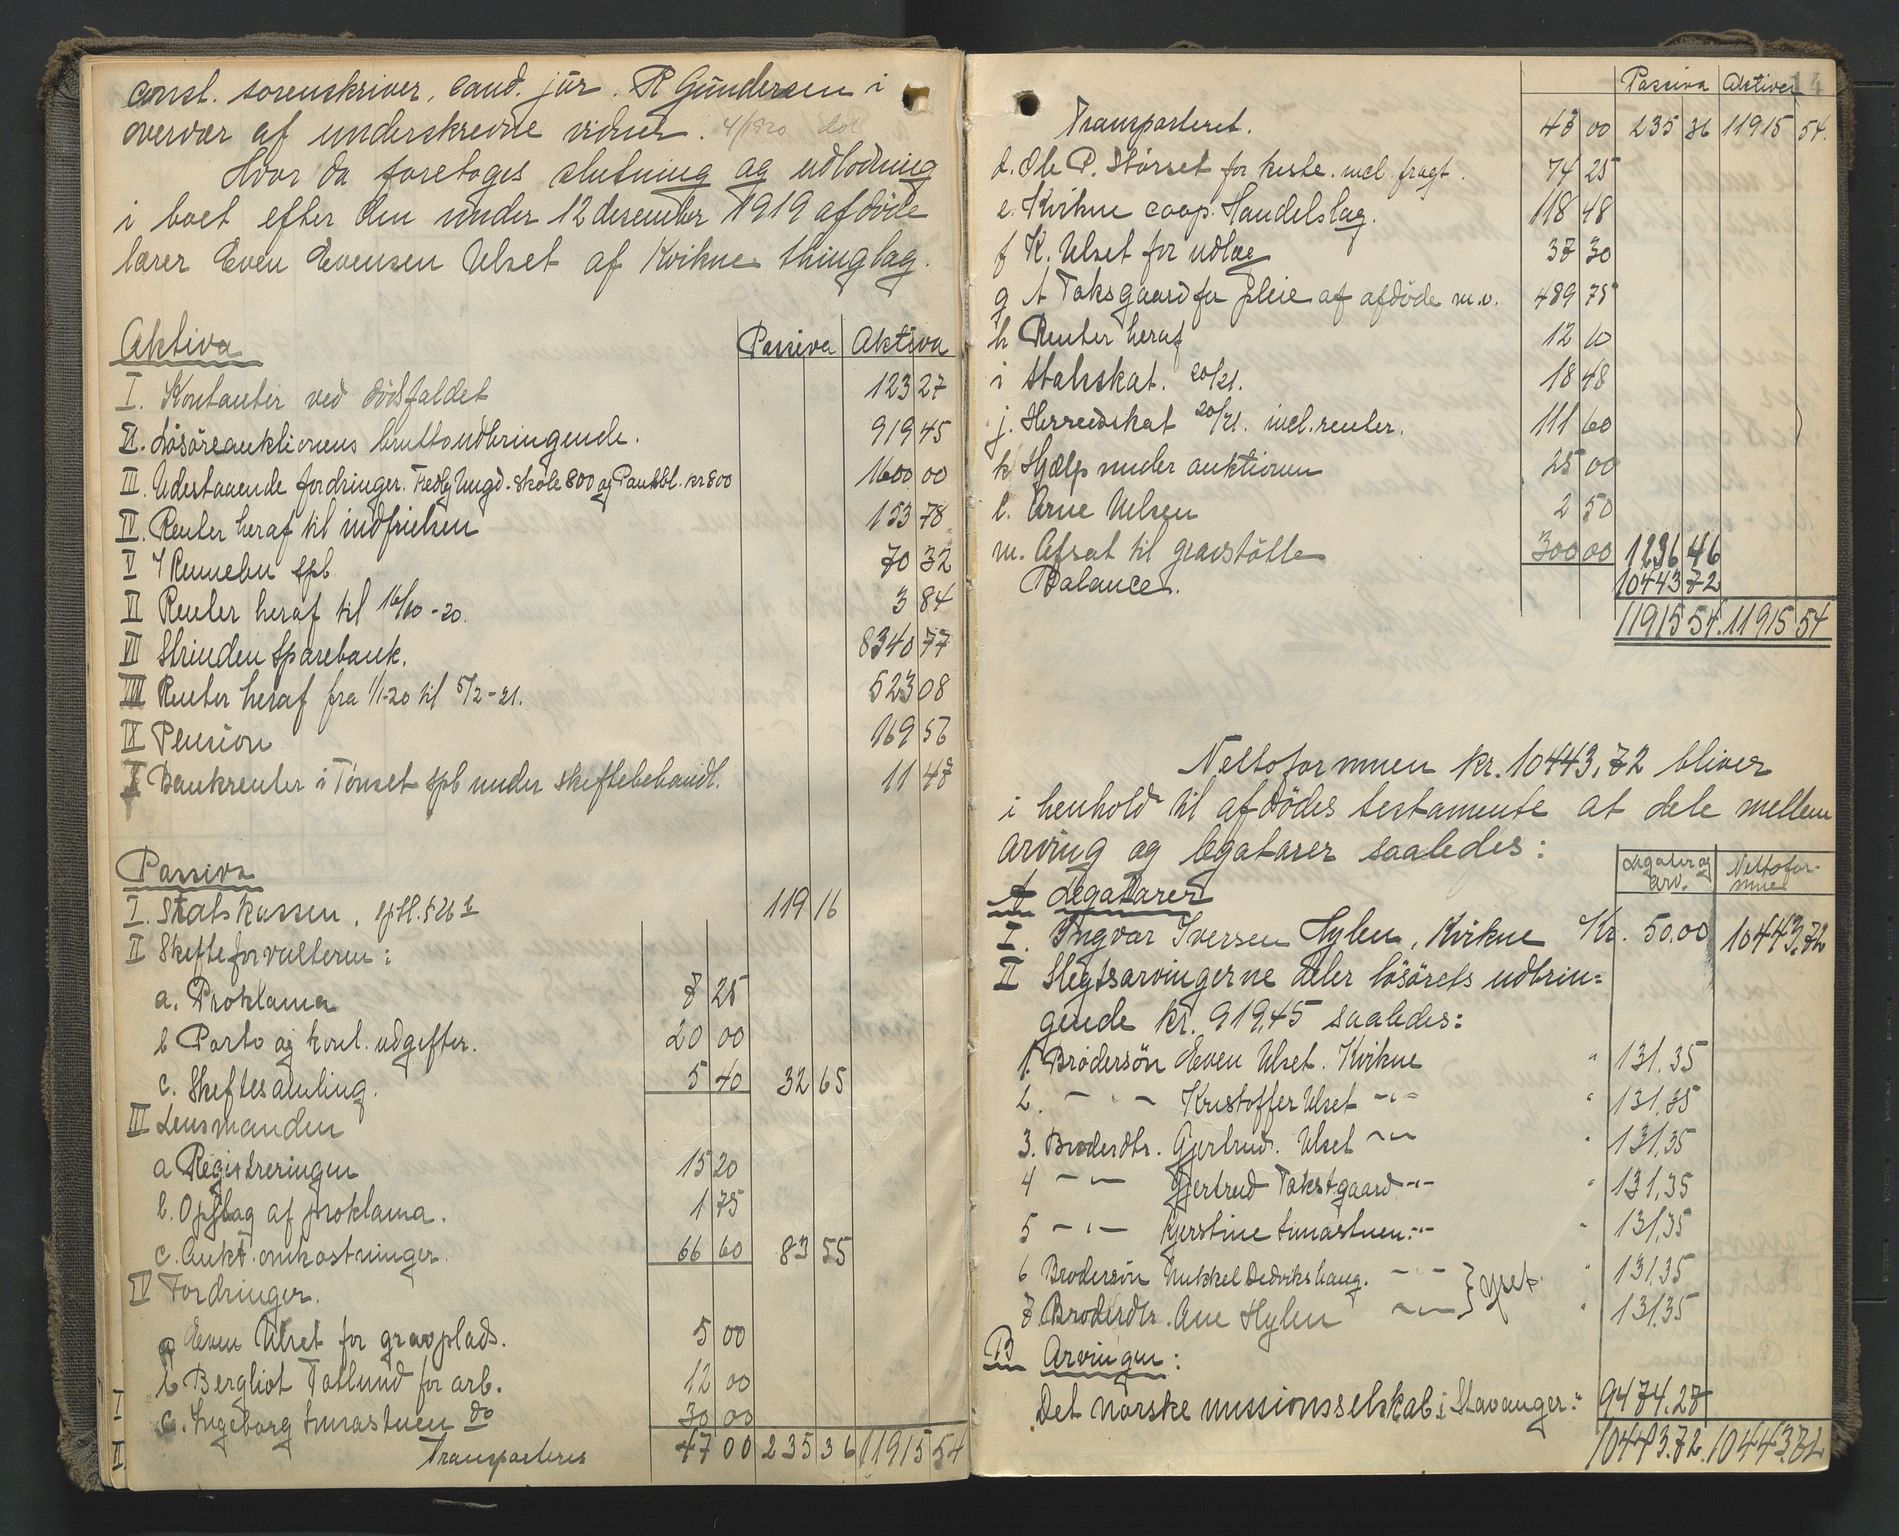 const. sorenskriver, cand. jur. R Gundersen i
overvær af underskrevne vidner.
Hvor da foretoges slutning og udlodning
i boet efter den under 12 desember 1919 afdöde
lærer Even Evensen Ulset af Kvikne thinglag.
Aktiva Passiva Aktiva
I. Kontanter ved dödsfaldet 123 27
II. Lösöreauktionens bruttoudbringende. 919 45
III. Udestaaende fordringer. Fredly Ungd. skole 800 og Pantobl. kr 800 1600 00
IV Renter heraf til indfrielsen 153 78
V I Rennebu spb 70 32
VI Renter heraf til 16/10-20. 3 84
VII Strinden Sparebank. 8340 77
VIII Renter heraf fra 1/1-20 til 5/2-21. 523 08
IX Pension 169 56
X Bankrenter i Tönset spb under skiftebehandl. 11 47
Passiva
I. Statskassen, 119 16
II Skifteforvalteren:
a. Proklama 7 25
b Porto og kont. udgifter. 20 00
c. Skiftesamling. 5 40 32 65
III Lensmanden
a Registreringen 15 20
b. Opslag af proklama. 1 75
c. Aukt. omkostninger. 66 60 83 55
IV Fordringer.
a Even Ulset for gravplads. 5 00
b Bergliot Totlund for arb. 12 00
c. Ingeborg Innastuen do 30 00
Transporteres 47 00 235 36 11915 54
Passiva Aktiva 14
Transporteret. 47 00 235 36 11915 54.
d. Ole P. Störset for kiste. incl. fragt. 74 25
e. Kvikne coop. Handelslag. 118 48
f K. Ulset for udlæg 37 30
g A Toksgaard for pleie af afdöde m.v. 489 75
h Renter heraf 12 10
i Statsskat. 20/21. 18 48
j. Herredsskat 20/21. incl. renter. 111 60
k Hjælp under auktionen 25 00
l. Arne Uelsen 2 50
m. Afsat til gravstötte 300 00 1236 46
Balance. 10443 72
11915 54. 11915 54
Nettoformuen kr. 10443,72 bliver
i henhold til afdödes testamente at dele mellem
arving og legatarer saaledes:
Legater og arv. Nettoformue
A Legatarer
I. Ingvar Iversen Hylen, Kvikne Kr. 50.00 10443,72
II Slegtsarvingerne deler lösörets udbrin=
gende kr. 919,45 saaledes:
1. Brödersön Even Ulset. Kvikne " 131.35
2. - " - Kristoffer Ulset - " - " 131,35
3. Broderdtr. Gjertrud. Ulset - " - " 131,35
4 - " - Gjertrud Tokstgaard - " - " 131,35
5 - " - Kjerstine Innastuen - " - " 131,35
6 Brodersön Mikkel Dedrikshaug. - " - } Yset. " 131,35
7 Broderdtr. Ane Hylen - " - " 131.35
B Arvingen:
Det norske missionsselskab i Stavanger. " 9474.27
10443.72. 10443.72